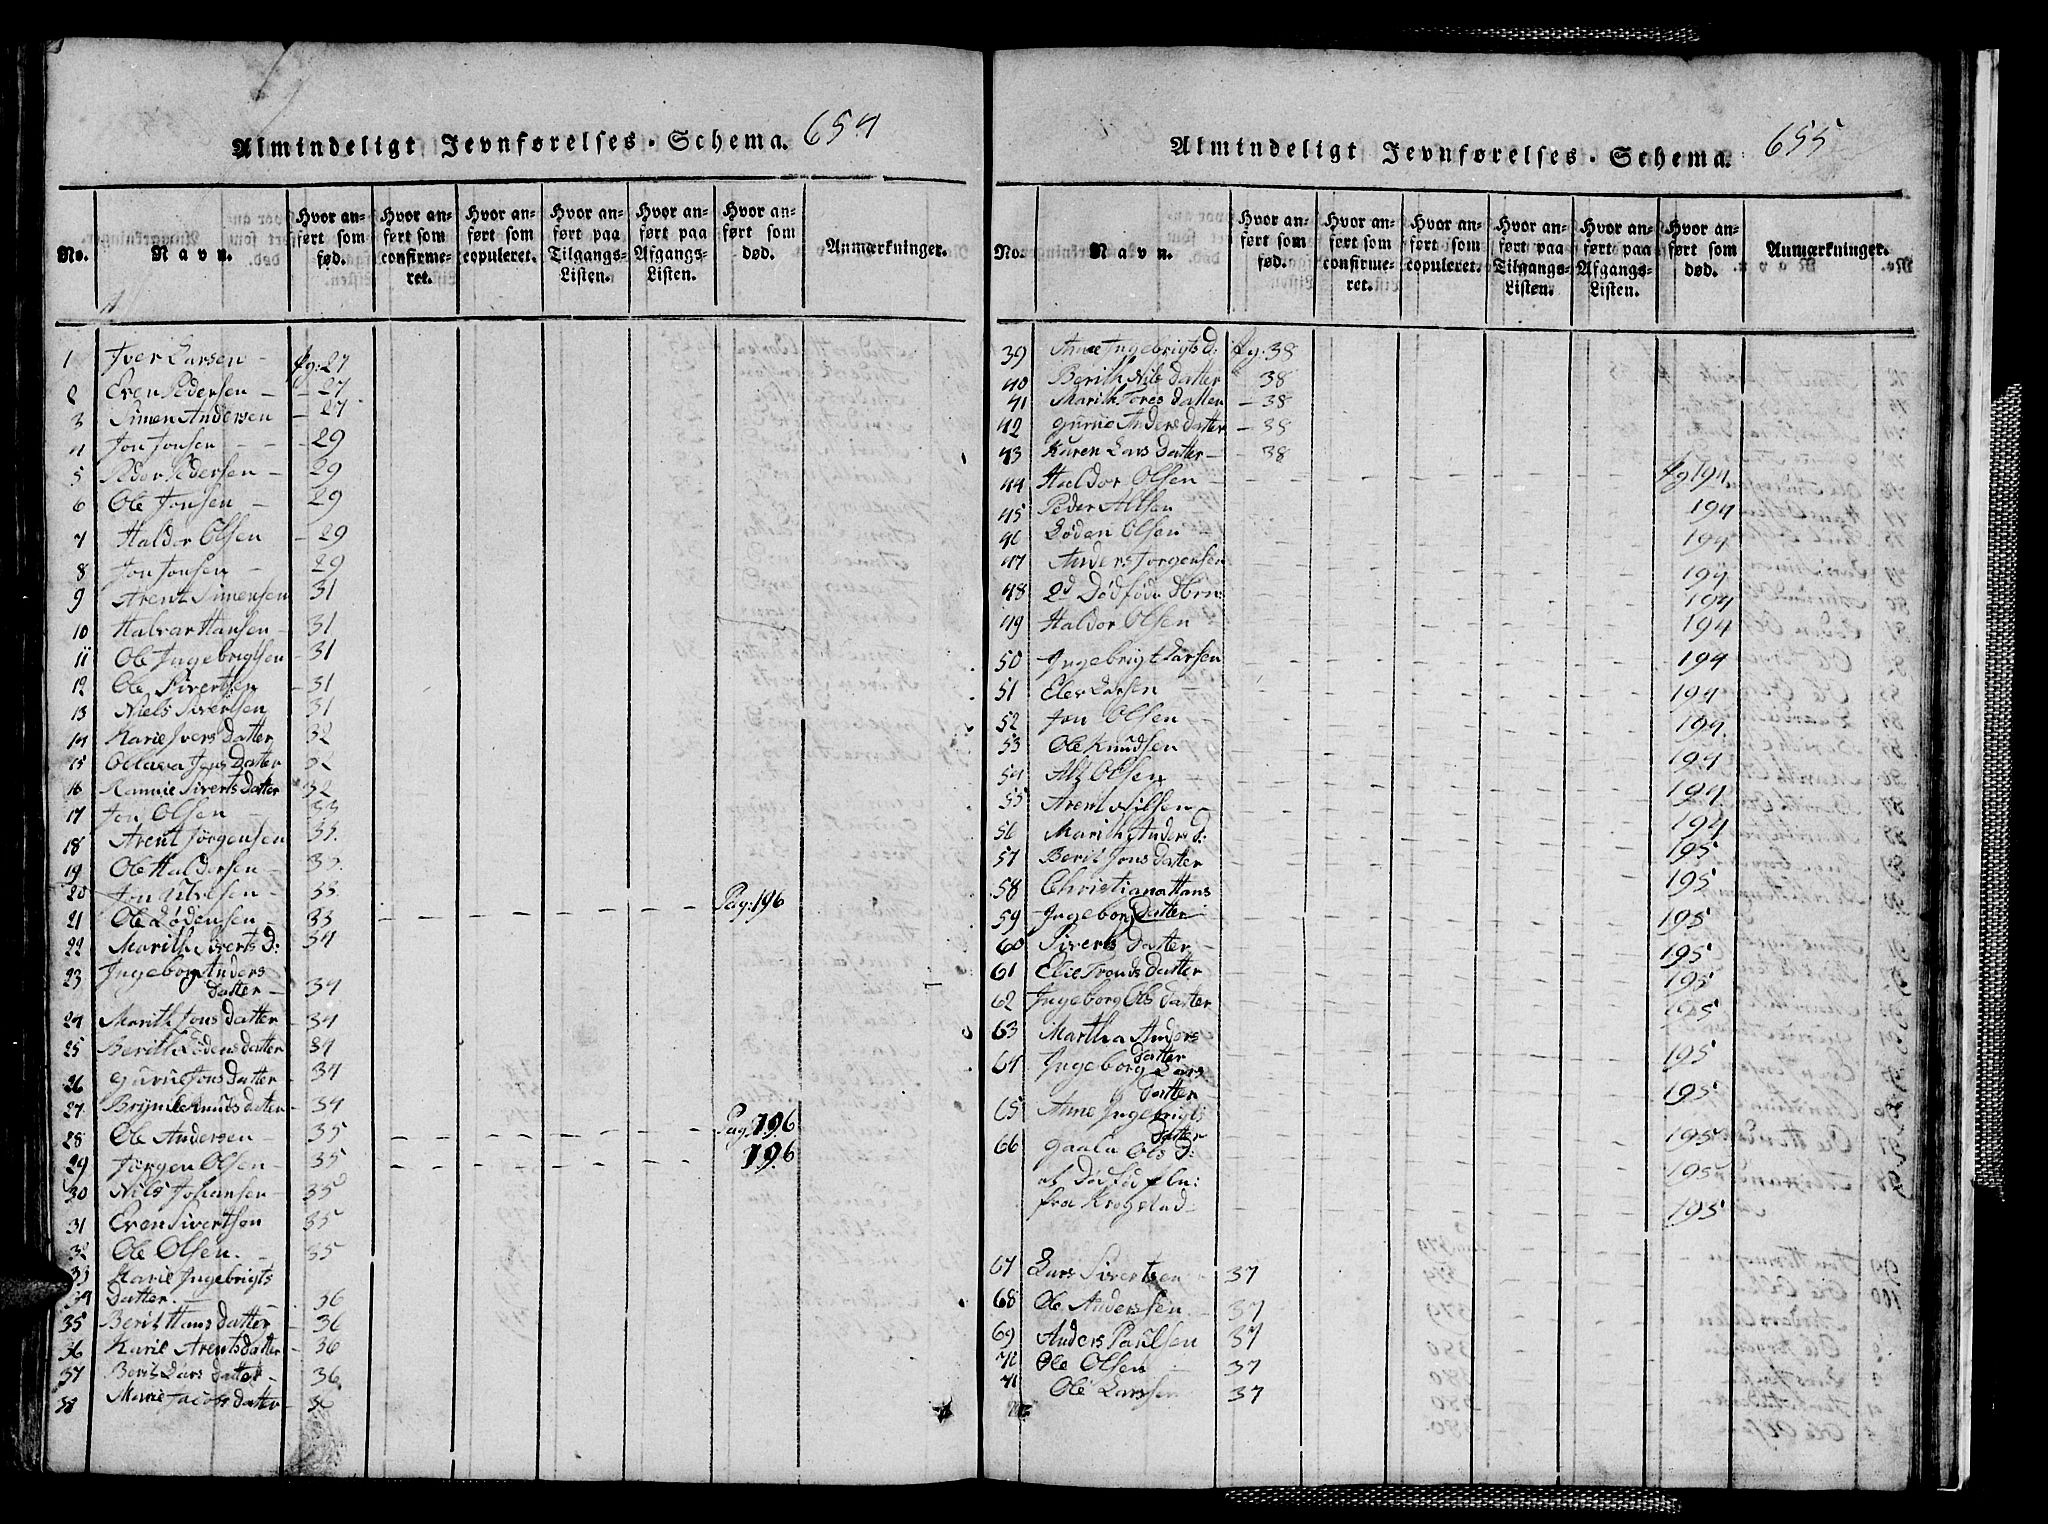 Almindeligt Jevnførelses-Schema. 654
No.
Navn.
Hvor anført som fød.
Hvor anført som confirmeret.
Hvor anført som copuleret.
Hvor anført paa Tilgangs-Listen.
Hvor anført paa Afgangs-Listen.
Hvor anført som død.
Anmarkninger.
1 Iver Larsen - Pg: 27
2 Even Pedersen - - 27
3 Simen Andersen - 27
4 Jon Jonsen - - - 29
5 Peder Pedersen - 29
6 Ole Jonsen - 29
7 Haldor Olsen - 29
8 Jon Jonsen - 29
9 Arent Simensen 31
10 Halvar Hansen - 31
11 Ole Ingebrigtsen - 31
12 Ole Sivertsen - 31
13 Niels Sivertsen 31
14 Karie Ivers Datter 32
15 Jons Datter
16 Siverts Datter 32
17 Jon Olsen 33
18 Arent Jörgensen 33.
19 Ole Haldorsen 33.
20 Jon 33
21 Ole Lödensen - 33 - - - - - - Pag: 196
22 Marith Siverts D: 34
23 Ingeborg Anders
Datter - 34
24 Marith Jons Datter - 34
25 Berith Lödens datter 34
26 Gurue Jons Datter - 34
27 Knuds datter - 34
28 Ole Andersen - 35 - - - - - Pag: 196
29 Jörgen Olsen - 35 - - - - - 196
30 Nils Johansen - 35
31 Even Sivertsen 35
32 Ole Olsen. - 35
33 Marie Ingebrigts
34 Datter. - 36
35 Berit Hans Datter - 36
36 Karie Arents datter - 36
37 Berit Lars Datter - 36
38 Marie Jacobs datter - 36
Almindeligt Jevnførelses-Schema. 655
No.
Navn.
Hvor anført som fød.
Hvor anført som confirmeret.
Hvor anført som copuleret.
Hvor anført paa Tilgangs-Listen.
Hvor anført paa Afgangs-Listen.
Hvor anført som død.
Anmarkninger.
39 Anne Ingebrigts d: Pg: 38
40 Berith Nils Datter 38
41 Marith Tores Datter - 38
42 Gurue Anders datter - 38
43 Karen Lars Datter - - 38
44 Haldor Olsen - - - - - - - Pg 194
45 Peder Altsen 194
46 Löden Olsen - 194
47 Anders Jörgensen 194
48 2d Dödföde Börn: 194
49 Haldor Olsen 194
50 Ingebrigt Larsen 194
51 Elev Larsen - 194
52 Jon Olsen 194
53 Ole Knudsen 194
54 Alt Olsen 194
55 Arent Nilsen - 194
56 Marith Anders d: 195
57 Berit Jons datter 195
58 Christiana Hans
59 Ingeborg Datter 195
60 Siverts Datter 195
61 Elie Tronds datter 195
62 Ingeborg Ols datter 195
63 Martha Anders
Datter 195
64 Ingeborg Lars
Datter - 195
65 Anne Ingebrigts
Datter 195
66 Ols D: 195
et Dödföd
fra Krogstad - 195
67 Lars Sivertsen 37
68 Ole Anderssen 37
69 Anders Paulsen 37
Ole Olsen 37
71 Ole Larssen 37